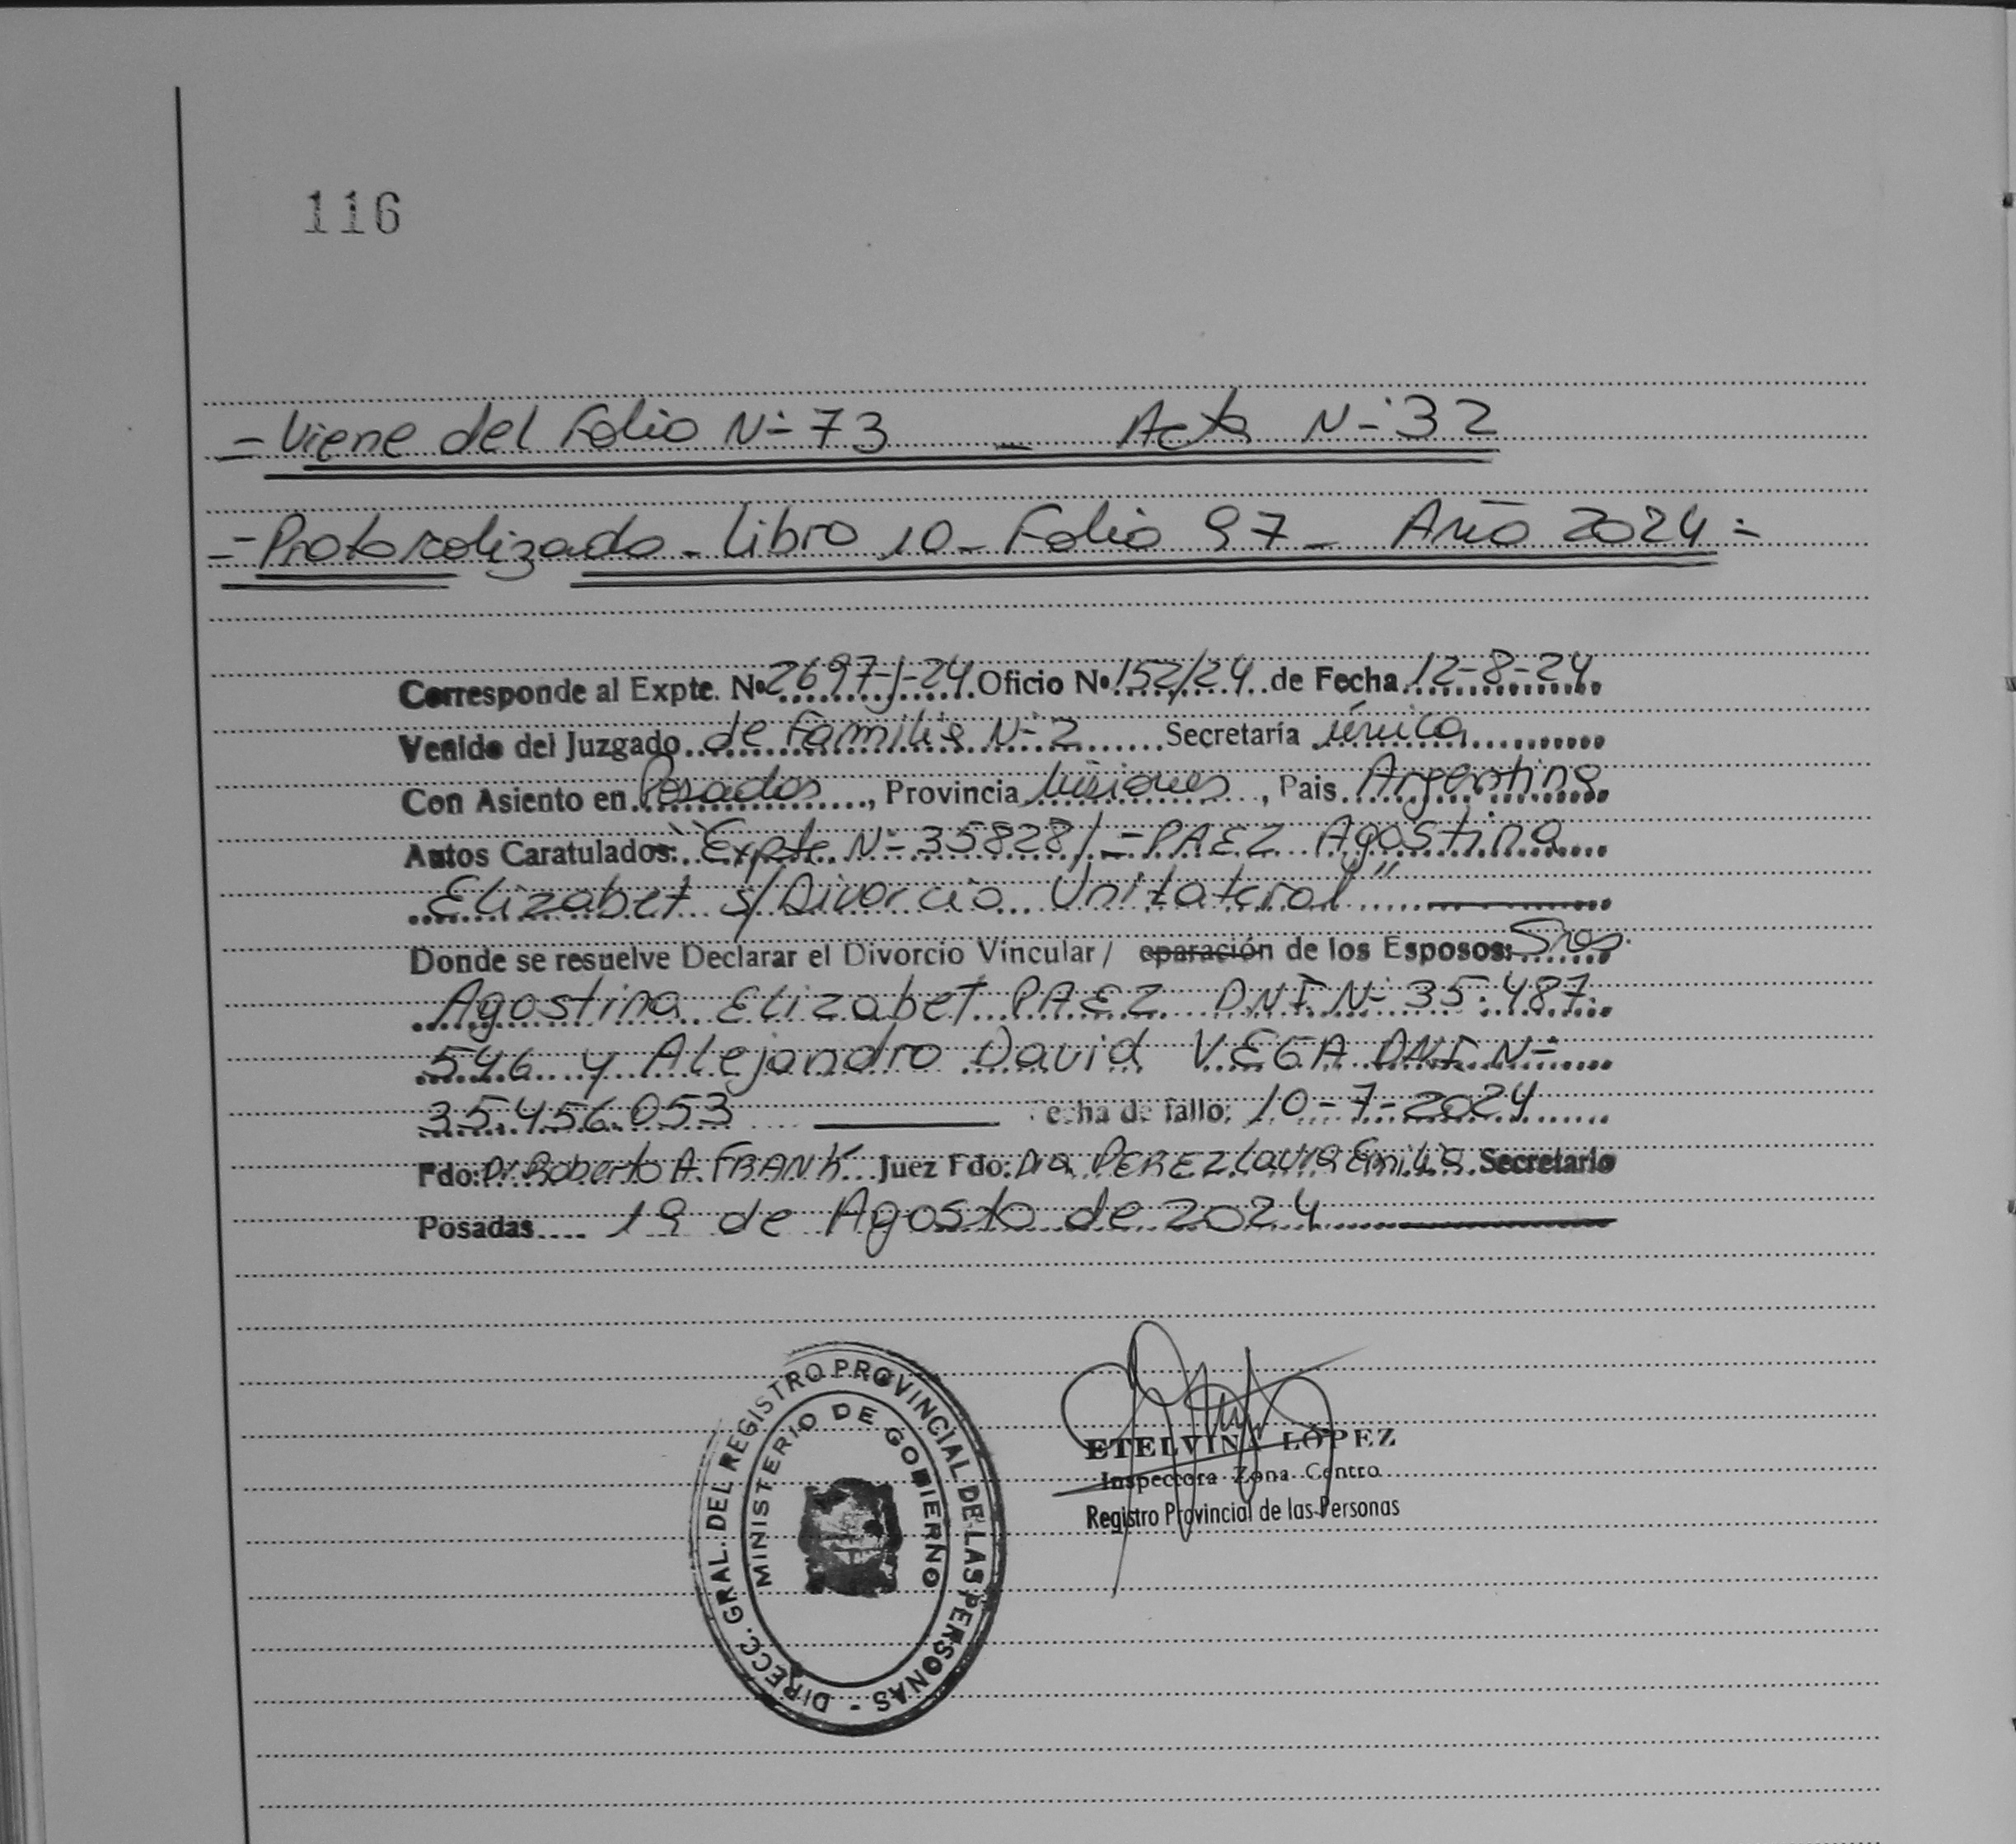 116
= Viene del Folio N° 73 - Acta N° 32
= Protocolizado - Libro 10 - Folio 97 - Año 2024 =
Corresponde al Expte. N° 2697-J-24 Oficio N° 152/24 de Fecha 12-8-24
Venido del Juzgado de Familia N° 2 Secretaría única
Con Asiento en Posadas, Provincia Misiones, Pais Argentina
Autos Caratulados: "Expte N° 35828/ = PAEZ Agostina
Elizabet s/Divorcio Unilateral"
Donde se resuelve Declarar el Divorcio Vincular / eparación de los Esposos: Sres.
Agostina Elizabet PAEZ DNI N° 35.487.
546 y Alejandro David VEGA DNI N°
35.456.053 Fecha de fallo: 10-7-2024
Fdo: Dr. Roberto A. FRANK Juez Fdo: Dra PEREZ Laura Emilia Secretario
Posadas 19 de Agosto de 2024
DIRECC. GRAL. DEL REGISTRO PROVINCIAL DE LAS PERSONAS -
MINISTERIO DE GOBIERNO
ETELVINA LÓPEZ
Inspectora Zona Centro
Registro Provincial de las Personas